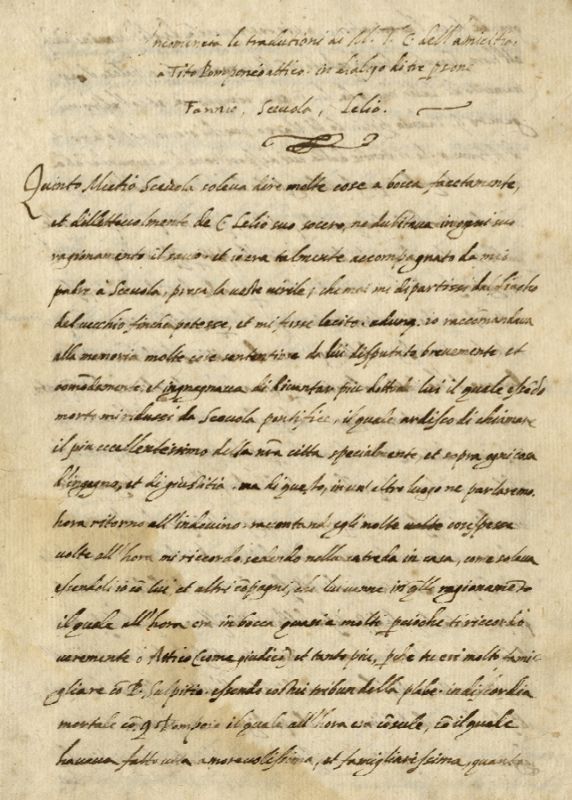 ncomincia le traduttioni di M. T. C. dell'amicitia.
a Tito Pomponeo attico. in dialogo di tre psone
Fannio, Scevola, Lelio.
Quinto Mutio Scevola soleva dire molte cose a bocca facetamente,
et dilettevolmente de C. Lelio suo socero, ne dubitava in ogni suo
ragionamento il savio. et io era talmente accompagnato da mio
padre à Scevola, presa la veste virile; che mai mi dipartissi dal fiancho
del vecchio finche potesse, et mi fusse lecito. aduna. io raccõmandava
alla memoria molte cose sententiose da lui disputate brevemente, et
cõmodamente, et ingegnava di divantar piu dotto di lui il quale essẽdo
morto mi ridussi da Scevola pontifice, il quale ardisco di chiamare
il piu eccellentissimo della nrã citta specialmente, et sopra ogni cosa
d'ingegno, et di giustitia. ma di questo, in un'altro luogo ne parlaremo.
hora ritorno all'indovino. racontandogli molte volte cose spesse
volte all'hora mi riccordo sedendo nella catreda in casa, come soleva
essendoli io cõ lui et altri cõpagni, che lui venne in qllo ragionamẽto
il quale all'hora era in bocca quasi à molti percioche ti riccordi
veramente ò Attico (come giudico) et tanto piu, pche tu eri molto fami-
gliare cõ P. Sulpitio. essendo costui tribun della plebe. in discordia
mortale cõ Q. Pompeio il quale all'hora era cõsule, cõ il quale
haveva fatto vita amorevolissima, et famigliarissima, quanta